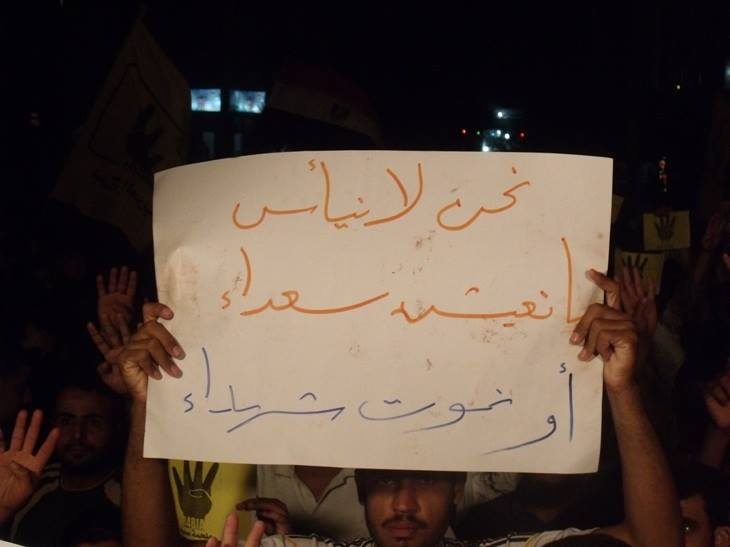 نحن لا نيأس
يا نعيش سعداء
أو نموت شهداء